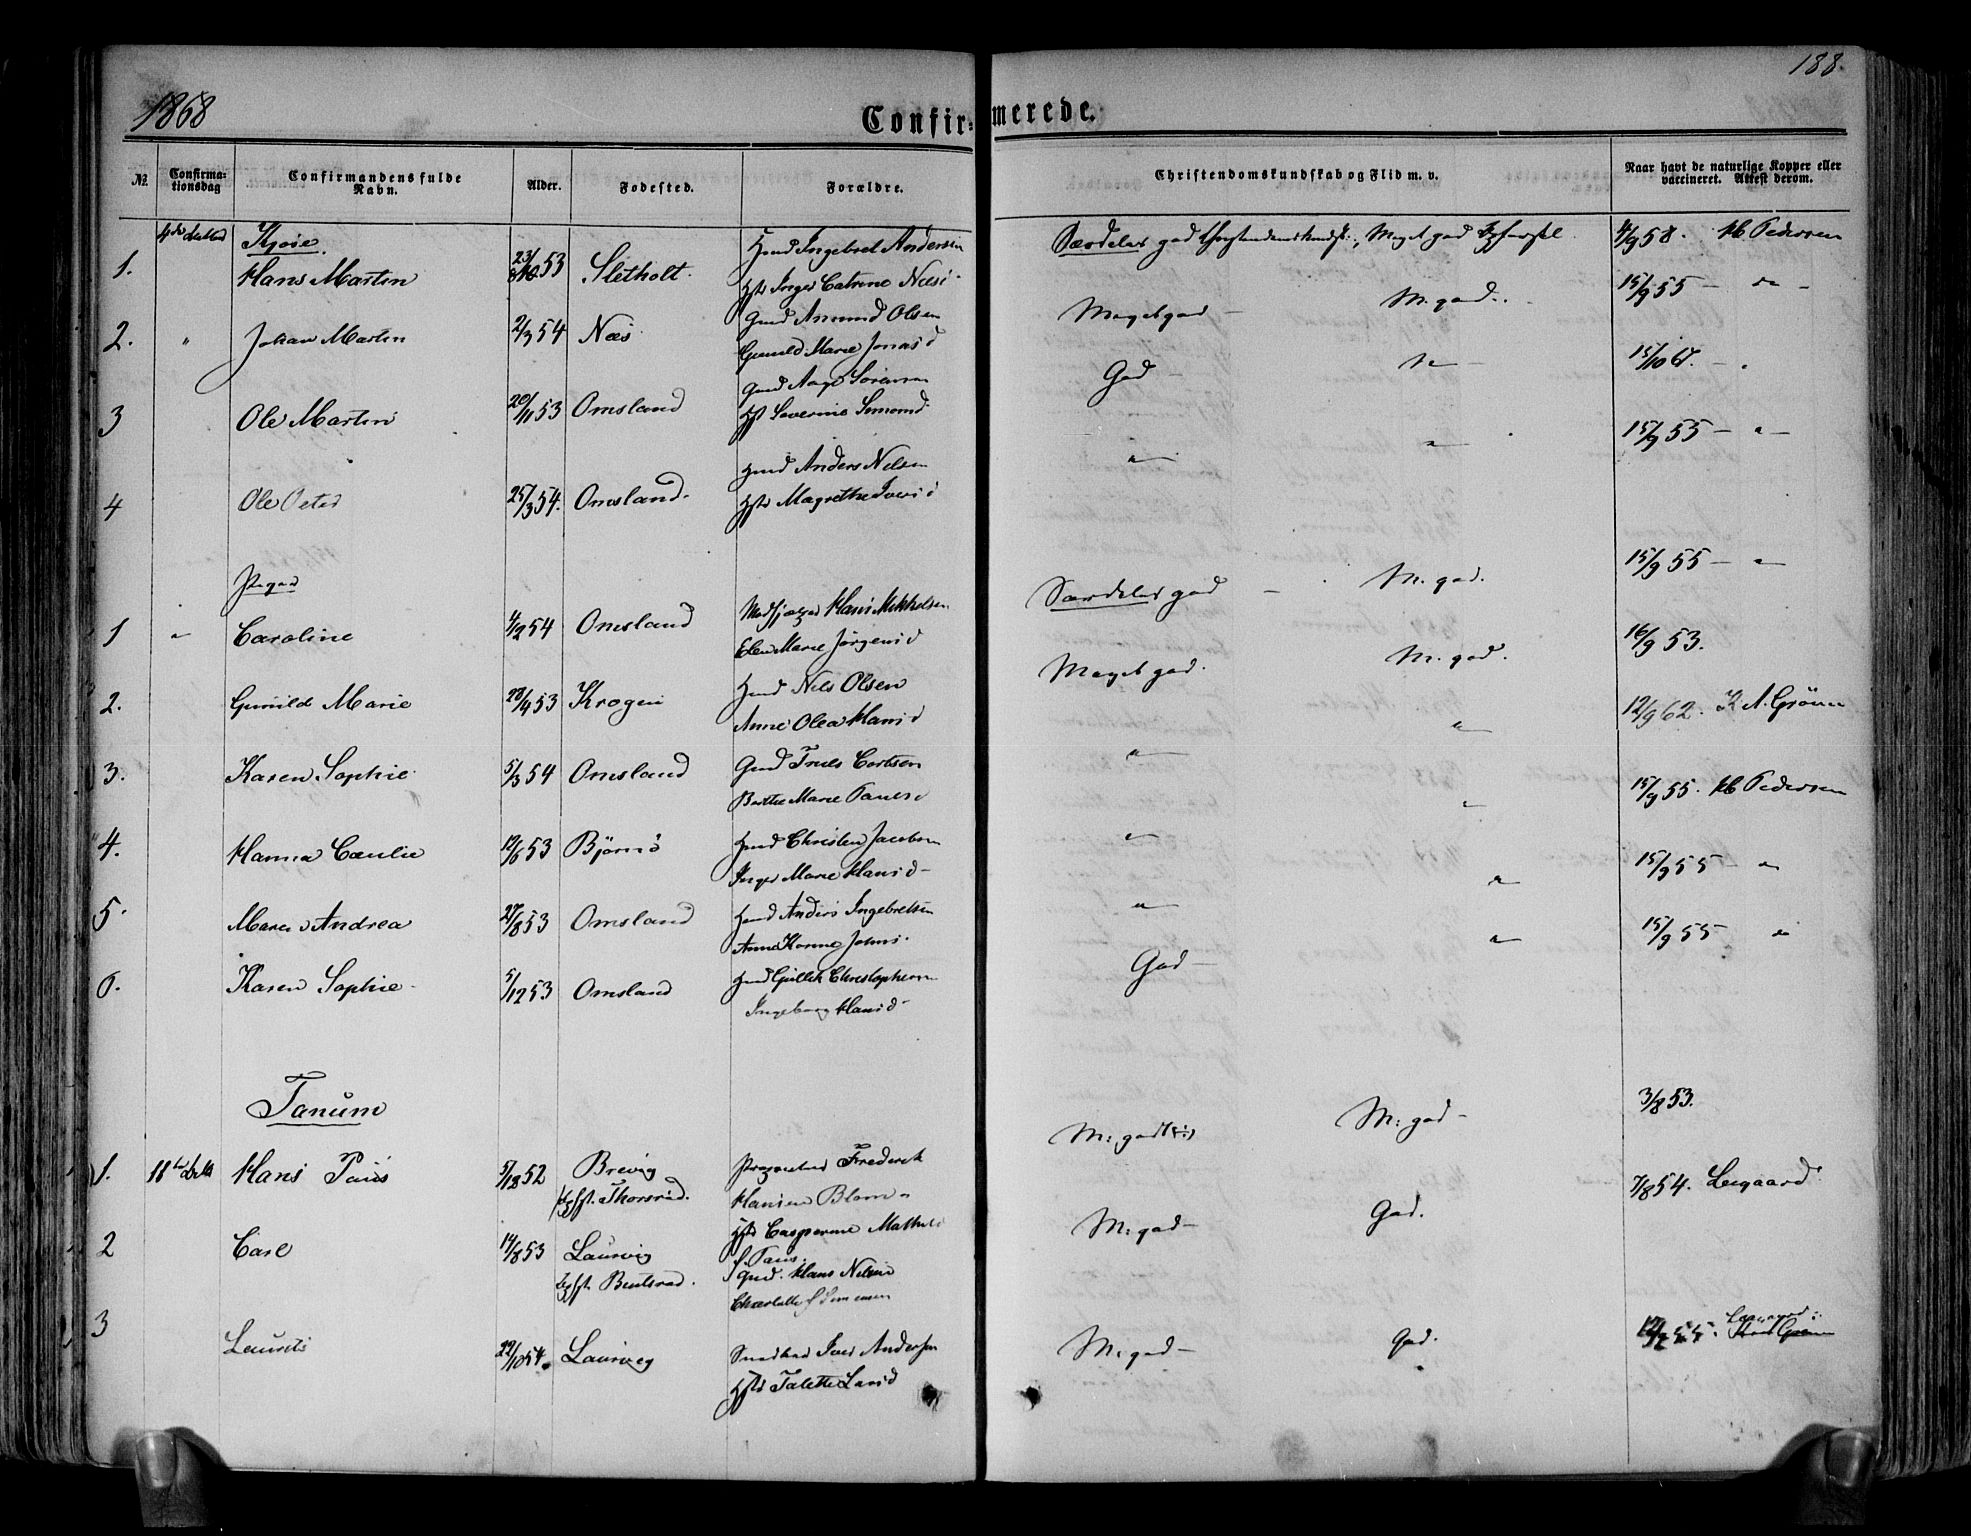 1868
188.
Confir- merede.
№ Confirmationsdag Confirmandens fulde Navn. Alder. Fødested. Forældre. Christendomskundskab og Flid m. v. Naar havt de naturlige Kopper eller vaccineret. Attest derom.
4de October Kjøse
1. Hans Martin 23/10 53 Sletholt. Hmd Ingebret Andersen Særdeles god Christendomskundsk., Meget god 4/9 58. Pedersen
Inger Catrine Næs
2. " Johan Martin 2/3 54 Næs Gmd Amund Olsen Meget god M. god. 15/9 55 do
Gunild Marie Jonasd
3 Ole Martin 20/11 53 Omsland Gmd Aage Sørensen God 15/10 67.
Severine Simonsd
4 Ole Peter 25/3 54. Omsland. Hmd Anders Nelsen 15/9 55
Magrethe Iversd
Piger
1 Caroline 4/2 54 Omsland Hans Mikkelsen Særdeles god M. god. 15/9 55
Elen Marie Jørgensd
2. Gunild Marie 28/4 53 Krogen Hmd Nils Olsen Meget god. M. god. 16/9 53.
Anne Olea Hansd
3. Karen Sophie 5/3 54 Omsland Gmd Truls Cortsen 12/9 62.
Berthe Marie Paulsd
4. Hanna Cæcilie 12/6 53 Bjørnø Hmd Christen Jacobsen 15/9 55. Pedersen
Inger Marie Hansd
5. Maren Andrea 27/8 53 Omsland Hmd Anders Ingebretsen 15/9 55
Anne Karine Johns.
6. Karen Sophie 5/12 53 Omsland Hmd Gullik Christophersen God 15/9 55 do
Ingeborg Hansd
Tanum
1. 18de Octb Hans Paus 5/12 52 Brevig Frederik M: god M: god 3/8 53.
Thorsrød. Hansen Blom
Casperine Mathilde
f. Paus.
2 Carl 14/8 53 Laurvig Gmd. Hans Nilsen M: god God. 7/8 54. Legaard
Bentsrød. Charlotte Simensen
3 Laurits 22/10 54. Laurvig Snedker Iver Andersen M: god God.
Talette Larsd